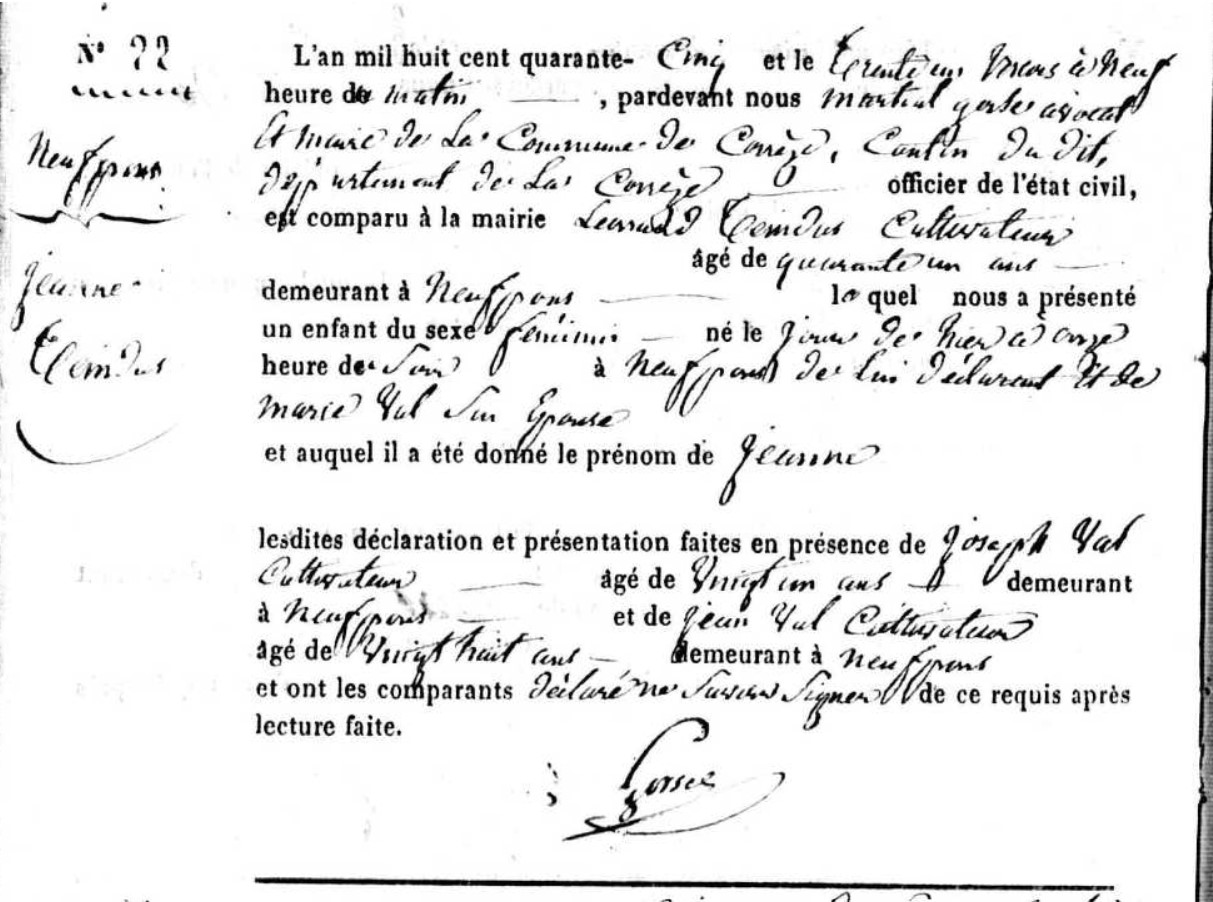 N° 22
Neufpons
Jeanne
Teindas
L'an mil huit cent quarante- Cinq et le trente un mars à neuf
heure du matin , pardevant nous martial gorse avocat
Et maire de La Commune de Corrèze, Canton du dit,
département de La Corrèze officier de l'état civil,
est comparu à la mairie Leonard Teindas Cultivateur
âgé de quarante un ans
demeurant à Neufpons lequel nous a présenté
un enfant du sexe féminin né le jour de hier à onze
heure de Soir à Neufpons de Lui déclarant Et de
marie Val Son Epouse
et auquel il a été donné le prénom de jeanne
lesdites déclaration et présentation faites en présence de joseph Val
Cultivateur âgé de Vingt un ans demeurant
à Neufpons et de jean Val Cultivateur
âgé de Vingt huit ans demeurant à neufpons
et ont les comparants déclaré ne Savoir Signer de ce requis après
lecture faite.
Gorse